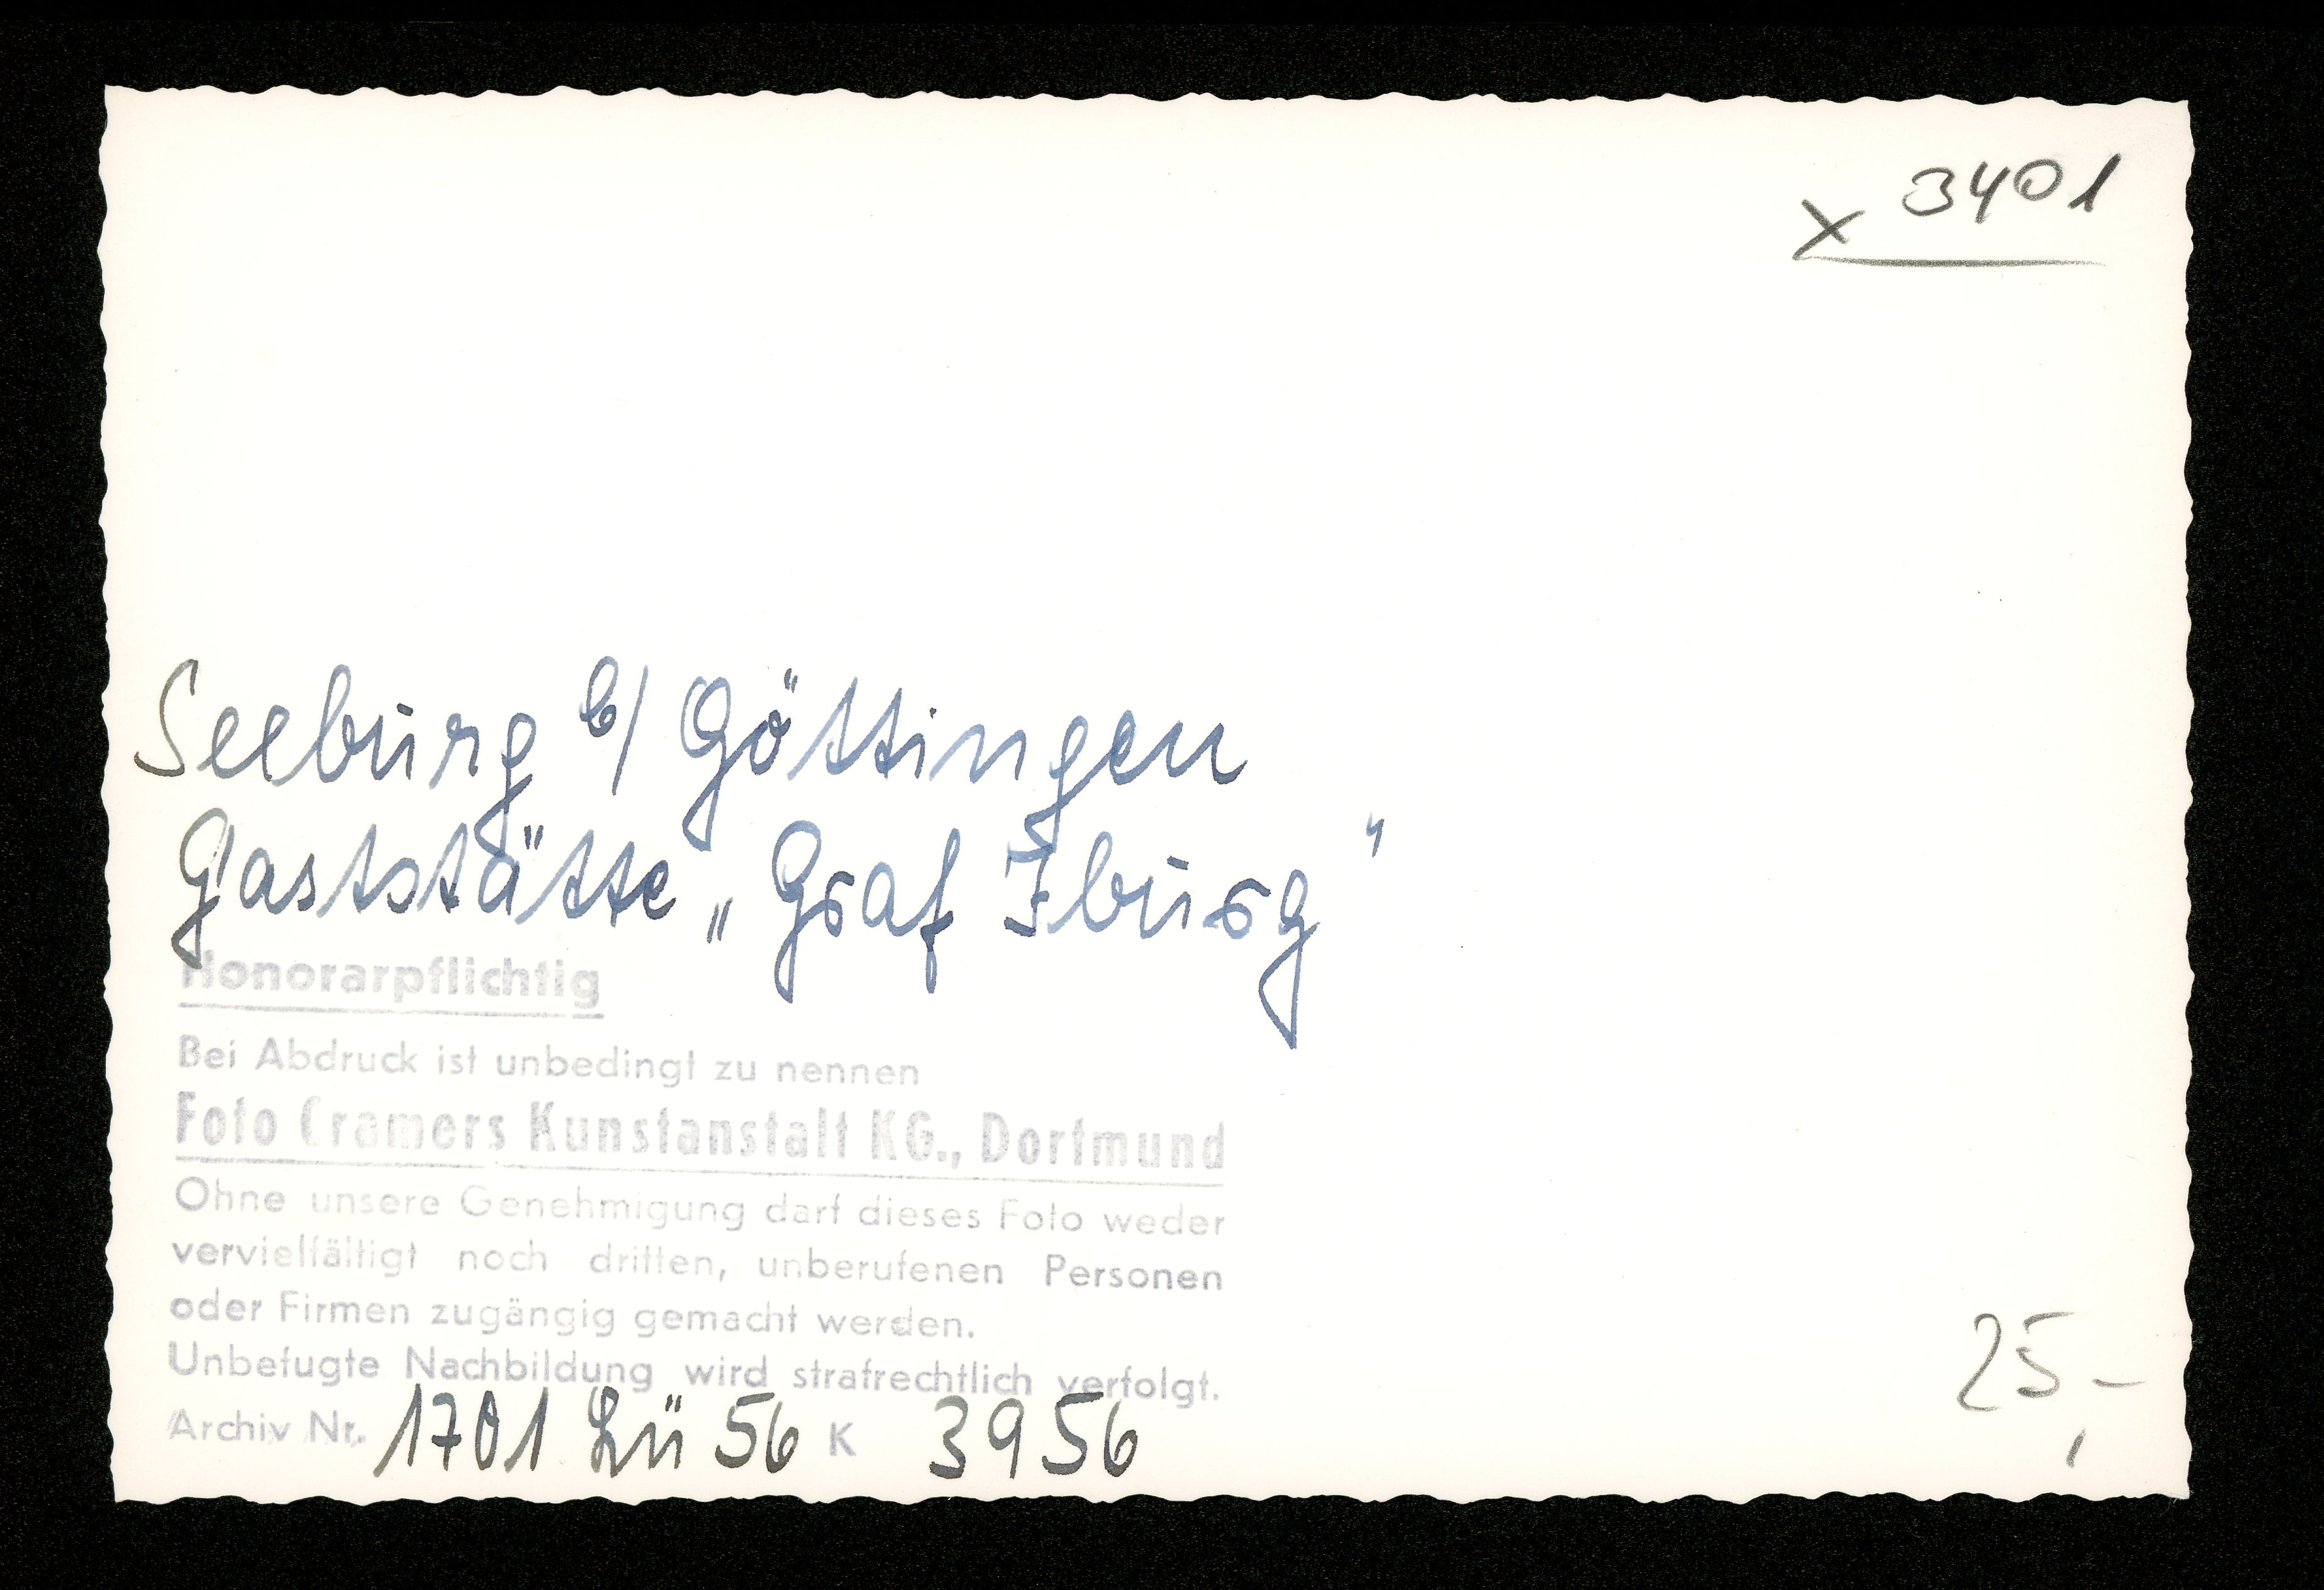 x 3401
Seeburg b/ Göttingen
Gaststätte „Graf Iburg"
Honorarpflichtig
Bei Abdruck ist unbedingt zu nennen
Foto Cramers Kunstanstalt KG., Dortmund
Ohne unsere Genehmigung darf dieses Foto weder
vervielfältigt noch dritten, unberufenen Personen
oder Firmen zugängig gemacht werden.
Unbefugte Nachbildung wird strafrechtlich verfolgt.
Archiv Nr. 1701 Lü 56 K 3956
25,-